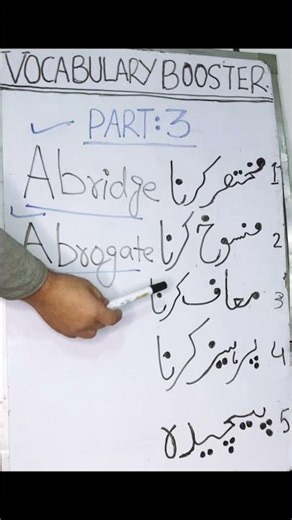 VOCABULARY BOOSTER.
PART:3
Abridge مختصر کرنا 1
Abrogate منسوخ کرنا 2
معاف کرنا 3
پرہیز کرنا 4
پیچیدہ 5